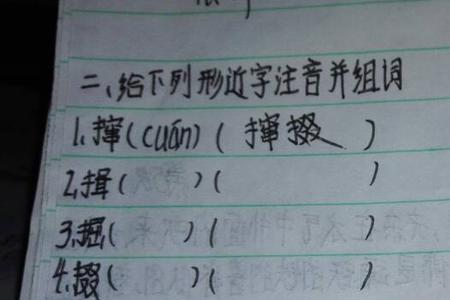 二、给下列形近字注音并组词
1.撺(cuán)(撺掇)
2.揖( )( )
3.掘( )( )
4.掇( )( )